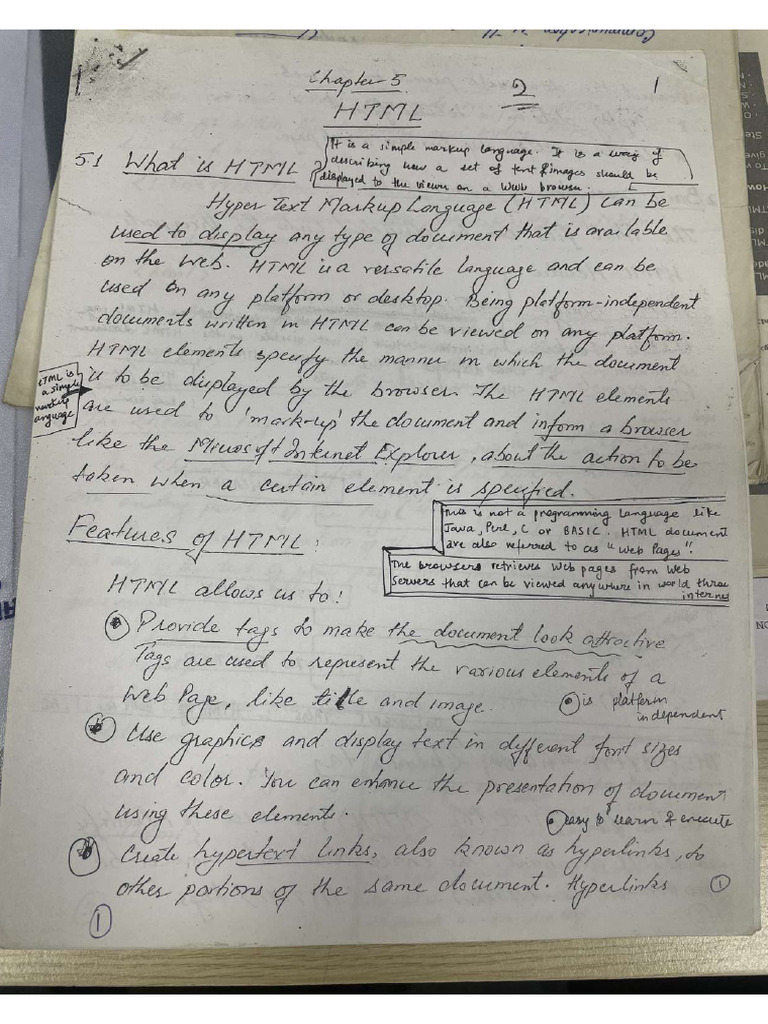 Communication
Chapter-5
2
1
HTML
It is a simple markup language. It is a way of
describing how a set of text & images should be
displayed to the viewer on a Web browser.
5.1 What is HTML
Hyper Text Markup Language (HTML) can be
used to display any type of document that is available
on the web. HTML is a versatile language and can be
used on any platform or desktop. Being platform-independent
documents written in HTML can be viewed on any platform.
HTML elements specify the manner in which the document
is to be displayed by the browser. The HTML elements
HTML is
a simple
markup
language
are used to 'mark-up' the document and inform a browser
like the Microsoft Internet Explorer, about the action to be
taken when a certain element is specified.
This is not a programming language like
Java, Perl, C or BASIC. HTML document
are also referred to as "Web Pages".
The browsers retrieves Web pages from Web
Servers that can be viewed anywhere in world throu
interne
Features of HTML:
HTML allows us to:
Provide tags to make the document look attractive
Tags are used to represent the various elements of a
Web Page, like title and image.
is platform
independent
Use graphics and display text in different font sizes
and color. You can enhance the presentation of document
using these elements.
easy to learn & execute
Create hypertext links, also known as hyperlinks, to
other portions of the same document. Hyperlinks
1
1